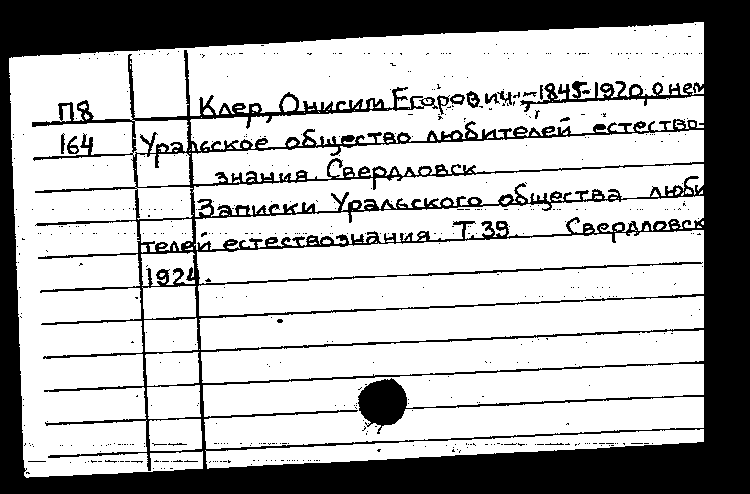 П8 Клер, Онисим Егорович, 1845-1920, о нем
164 Уральское общество любителей естество-
знания. Свердловск
Записки Уральского общества люби
телей естествознания. Т. 39 Свердловск
1924.